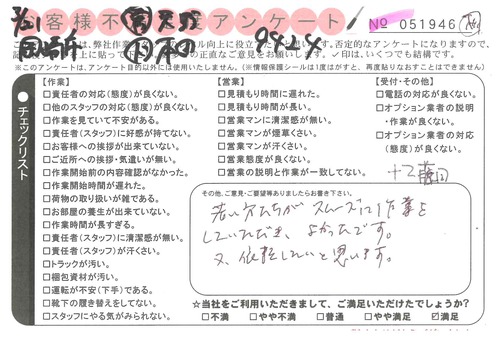 お客様不満作業アンケート
No 051946
9424
は、弊社作業
ル向上に役立
思います。否定的なアンケートになりますので、
の正直なご意見をお願いします。✓印は、いくつでも結構です。
※このアンケートは、アンケート目的以外には使用いたしません。(※情報保護シールは1度はがすと、再度貼りなおすことはできません)
●チェックリスト
【作業】
□責任者の対応(態度)が良くない。
□他のスタッフの対応(態度)が良くない。
□作業を見ていて不安がある。
□責任者(スタッフ)に好感が持てない。
□お客様への挨拶が出来ていない。
□ご近所への挨拶・気遣いが無い。
□作業開始前の内容確認がなかった。
□作業開始時間が遅れた。
□荷物の取り扱いが雑である。
□お部屋の養生が出来ていない。
□作業時間が長すぎる。
□責任者(スタッフ)に清潔感が無い。
□責任者(スタッフ)が汗くさい。
□トラックが汚い。
□梱包資材が汚い。
□運転が不安(下手)である。
□靴下の履き替えをしてない。
□スタッフにやる気がみられない。
【営業】
□見積もり時間に遅れた。
□見積もり時間が長い。
□営業マンに清潔感が無い。
□営業マンが煙草くさい。
□営業マンが汗くさい。
□営業態度が良くない。
□営業の説明と作業が一致してない。
【受付・その他】
□電話の対応が良くない。
□オプション業者の説明
・作業が良くない。
□オプション業者の対応
(態度)が良くない。
その他、ご意見・ご要望等ありましたらお書き下さい。
若い人たちがスムーズに作業を
していただき、よかったです。
又、依頼したいと思います。
☆当社をご利用いただきまして、ご満足いただけたでしょうか?
□不満 □やや不満 □普通 □やや満足 ☑満足